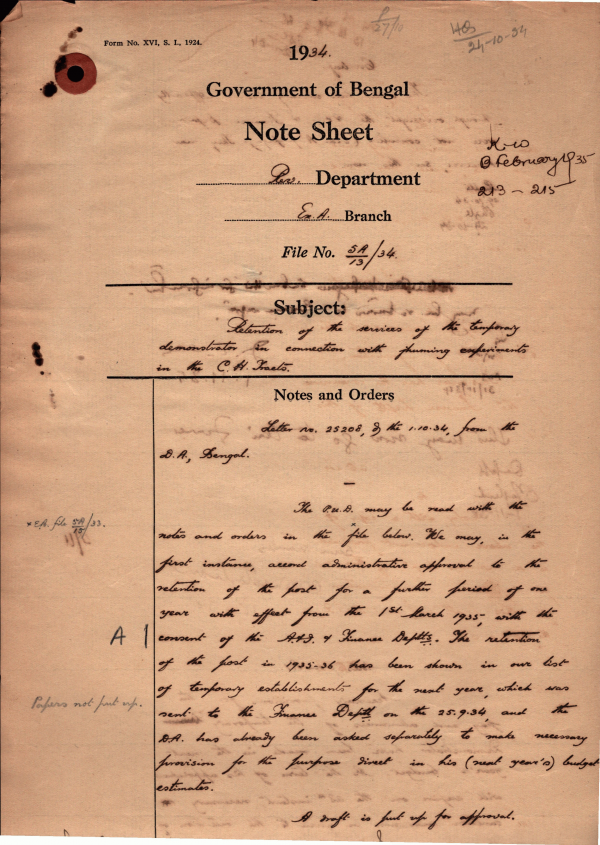 Form No. XVI, S. I., 1924.
27/10
24-10-34
1934.
Government of Bengal
Note Sheet
K-W
B February 1935
213 – 215
Rev. Department
Ex A. Branch
File No. 5A/13/34.
Subject:
Retention of the services of the temporary
demonstrator in connection with jhuming experiments
in the C. H. Tracts.
Notes and Orders
Letter no. 25208, d/ the 1.10.34, from the
D.A., Bengal.
The P.U.D. may be read with the
* E.A. file 5A/15/33.
notes and orders in the * file below. We may, in the
first instance, accord administrative approval to the
retention of the post for a further period of one
year with effect from the 1st March 1935, with the
A
consent of the A.&I. & Finance Deptts. The retention
of the post in 1935-36 has been shown in our list
of temporary establishments for the next year, which was
Papers not put up.
sent to the Finance Deptt on the 25.9.34, and the
D.A. has already been asked separately to make necessary
provision for the purpose direct in his (next year's) budget
estimates.
A draft is put up for approval.